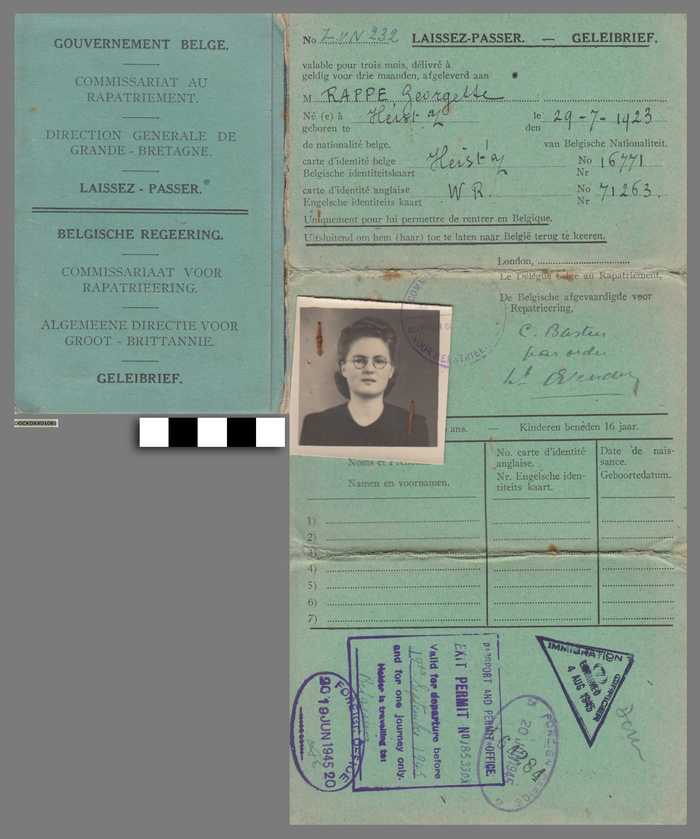 GOUVERNEMENT BELGE.
COMMISSARIAT AU
RAPATRIEMENT.
DIRECTION GENERALE DE
GRANDE - BRETAGNE.
LAISSEZ - PASSER.
BELGISCHE REGEERING.
COMMISSARIAAT VOOR
RAPATRIEERING.
ALGEMEENE DIECTIE VOOR
GROOT - BRITTANNIE.
GELEIBRIEF.
No Z.V.N 232 LAISSEZ-PASSER. — GELEIBRIEF.
valable pour trois mois, délivré à
geldig voor drie maanden, afgeleverd aan
M RAPPE Georgette
Né (e) à Heist a/z le 29-7-1923
geboren te den
de nationalité belge. van Belgische Nationaliteit.
carte d'identité belge Heist a/z No 16771
Belgische identiteitskaart Nr
carte d'identité anglaise W R. No 71263.
Engelsche identiteits kaart Nr
Uniquement pour lui permettre de rentrer en Belgique.
Uitsluitend om hem (haar) toe te laten naar België terug te keeren.
London,
Le Délégué belge au Rapatriement,
De Belgische afgevaardigde voor
Repatrieering,
C. Basten
par ordre
ans. — Kinderen beneden 16 jaar.
Noms et
Namen en voornamen.
No. carte d'identité
anglaise.
Nr. Engelsche iden-
titeits kaart.
Date de nais-
sance.
Geboortedatum.
1)
2)
3)
4)
5)
6)
7)
FOREIGN OFFICE
20 19 JUN 1945 20
PASSPORT AND PERMIT OFFICE.
EXIT PERMIT No
Valid for departure before
19th September 1945
and for one journey only.
Holder is travelling to:
FOREIGN OFFICE
IMMIGRATION OFFICER
EMBARKED
4 AUG 1945